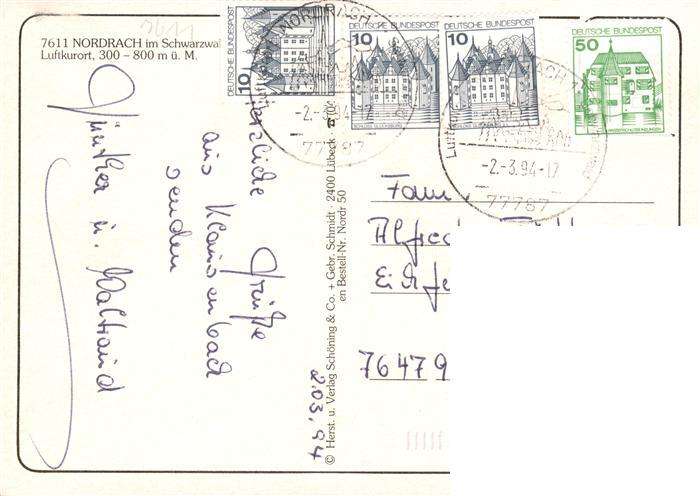 7611 NORDRACH im Schwarzwal
Luftkurort, 300 – 800 m ü. M.
Herzliche Grüße
aus Klausenbach
senden
Günther u. Waltraud
2.03.94
© Herst. u. Verlag Schöning & Co. + Gebr. Schmidt · 2400 Lübeck
en Bestell-Nr. Nordr 50
DEUTSCHE BUNDESPOST
10
DEUTSCHE BUNDESPOST
10
SCHLOSS GLÜCKSBURG
DEUTSCHE BUNDESPOST
10
DEUTSCHE BUNDESPOST
50
NORDRACH
-2.-3.94-17
77787
-2.-3.94-17
77787
Fam
Alfred
76479